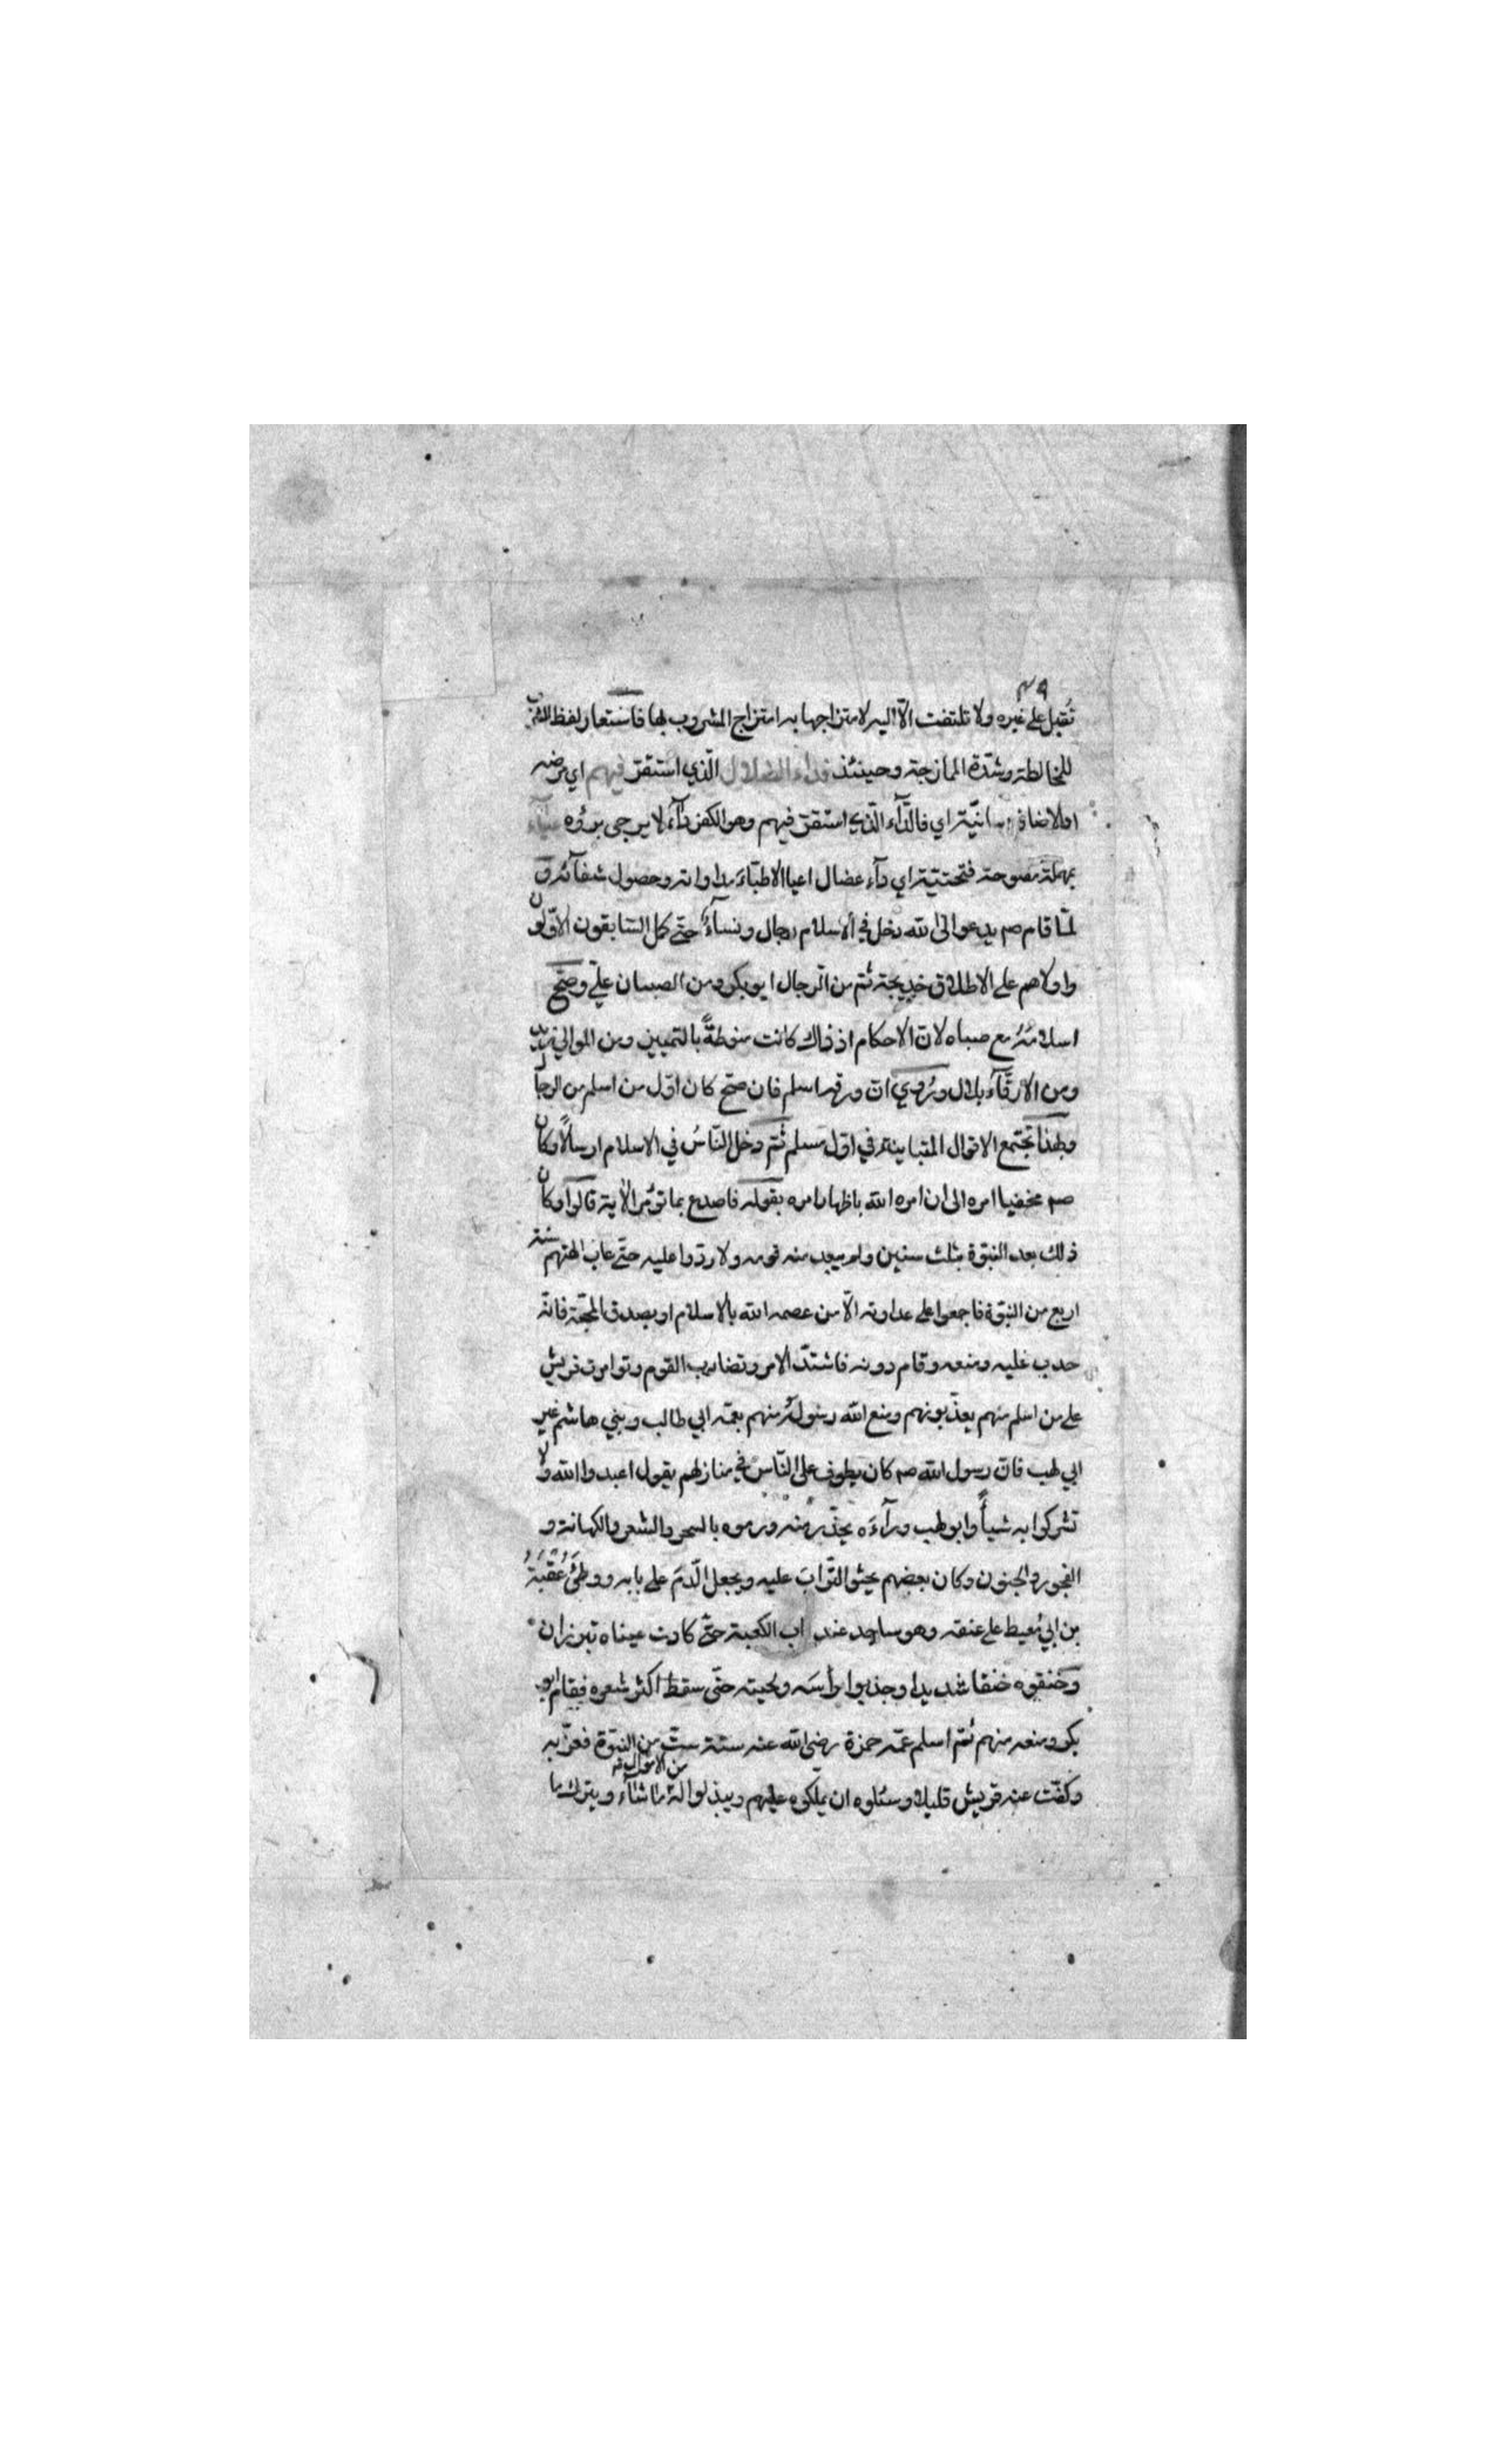 تُقبل على غيره ولا تلتفت الّا اليه لامتزاجها به امتزاج المشروب بها فاستعار لفظ الشرب
للمخالطة وشدّة الممازجة وحينئذ فداء الضلال الّذي استقرّ فيهم اي مرضه
اى فالدّآء الّذي استقرّ فيهم وهو الكفر دآءٌ لا يرجى برؤه عيآء
بمهملة مفتوحة فتحتيّة اي دآء عضال اعيا الاطبّاءَ مداواته وحصول شفآئه و
لمّا قام صم يدعو الى الله دخل في الاسلام رجال ونسآءٌ حتّى كمل السّابقون الاوّلون
واولاهم على الاطلاق خديجة ثمّ من الرجال ابو بكر ومن الصبيان عليّ وصحّ
اسلامُهُ مع صباه لانّ الاحكام اذ ذاك كانت منوطةً بالتمييز ومن الموالي زيد
ومن الارقّآء بلال ورُوي انّ ورقه اسلم فان صحّ كان اوّل من اسلم من الرجال
وبهذا تجتمع الاقوال المتباينة في اوّل مسلم ثمّ دخل النّاسُ في الاسلام ارسالًا وكان
صم مخفيا امره الى ان امره الله باظهار امره بقوله فاصدع بما تؤمر الآية قالوا وكان
ذلك بعد النبوّة بثلث سنين ولم يبعد منه قومه ولا ردّوا عليه حتّى عاب الهتهم سنة
اربع من النبوّة فاجمعوا على عداوته الّا من عصمه الله بالاسلام او بصدق المحبّة فانّه
حدب عليه ومنعه وقام دونه فاشتدّ الامر وتضارب القوم وتوامرت قريش
على من اسلم منهم يعذّبونهم ومنع الله رسولَهُ منهم بعمّه ابي طالب وبني هاشم غير
ابي لهب فانّ رسول الله صم كان يطوف على النّاس في منازلهم يقول اعبدوا الله ولا
تشركوا به شيأً وابو لهب ورآءَه يحذّر منه ورموه بالسحر والشعر والكهانة و
الفجور والجنون وكان بعضهم يحثو التّرابَ عليه ويجعل الدّمَ على بابه ووطئَ عُقْبَةُ
بن ابي مُعيط على عنقه وهو ساجد عند باب الكعبة حتّى كادت عيناه تبرزان
وخنقوه خنقا شديدا وجذبوا رأسَه ولحيته حتّى سقط اكثر شعره فقام ابو
بكر ومنعه منهم ثمّ اسلم عمّه حمزة رضي الله عنه سنة ستّ من النبوّة فعزّ به
وكفّت عنه قريش قليلا وسئلوه ان يملكوه عليهم ويبذلوا لهُ ما شآء من الاموال ويترك ما